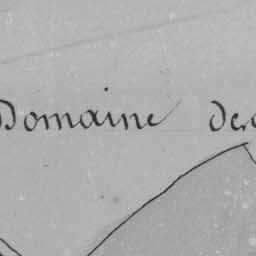 Domaine des